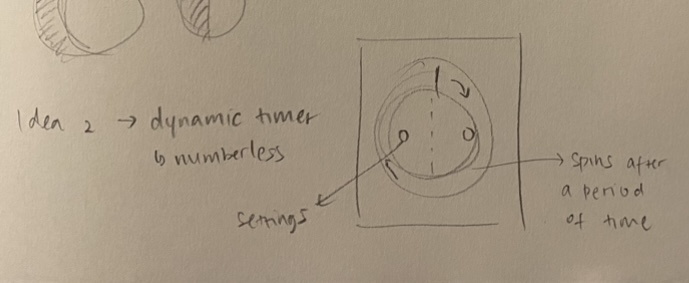 Idea 2 → dynamic timer
↳ numberless
settings
spins after
a period
of time